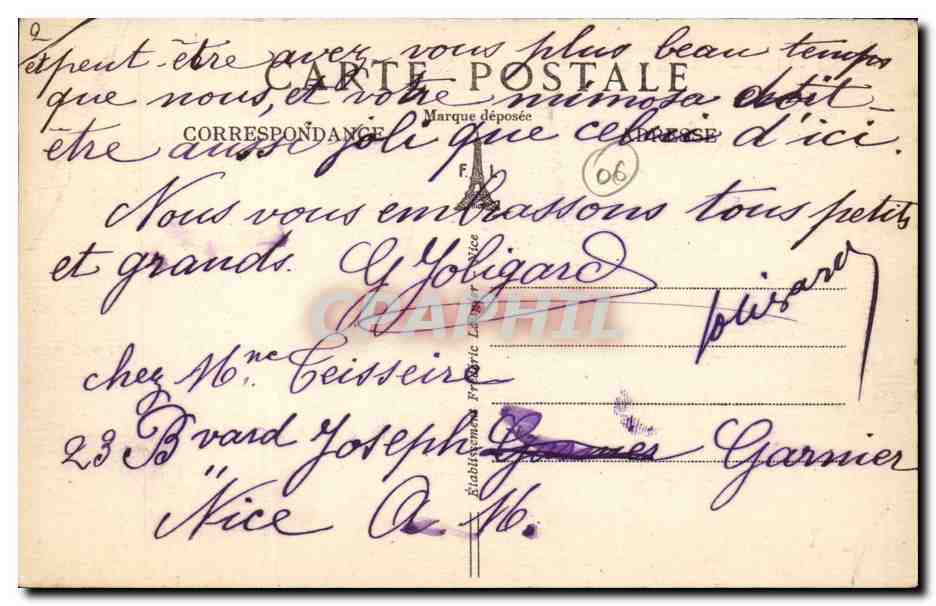 2
et peut-être avez vous plus beau temps
CARTE POSTALE
que nous, et votre mimosa doit-
Marque déposée
CORRESPONDANCE ADRESSE
être aussi joli que celui d'ici.
F. L.
06
Nous vous embrassons tous petits
et grands. G Joligard
Joligard
CPAPHIL
chez Mme Teisseire
23 Bvard Joseph Garnier
Nice A. M.
Établissement Frédéric Nice